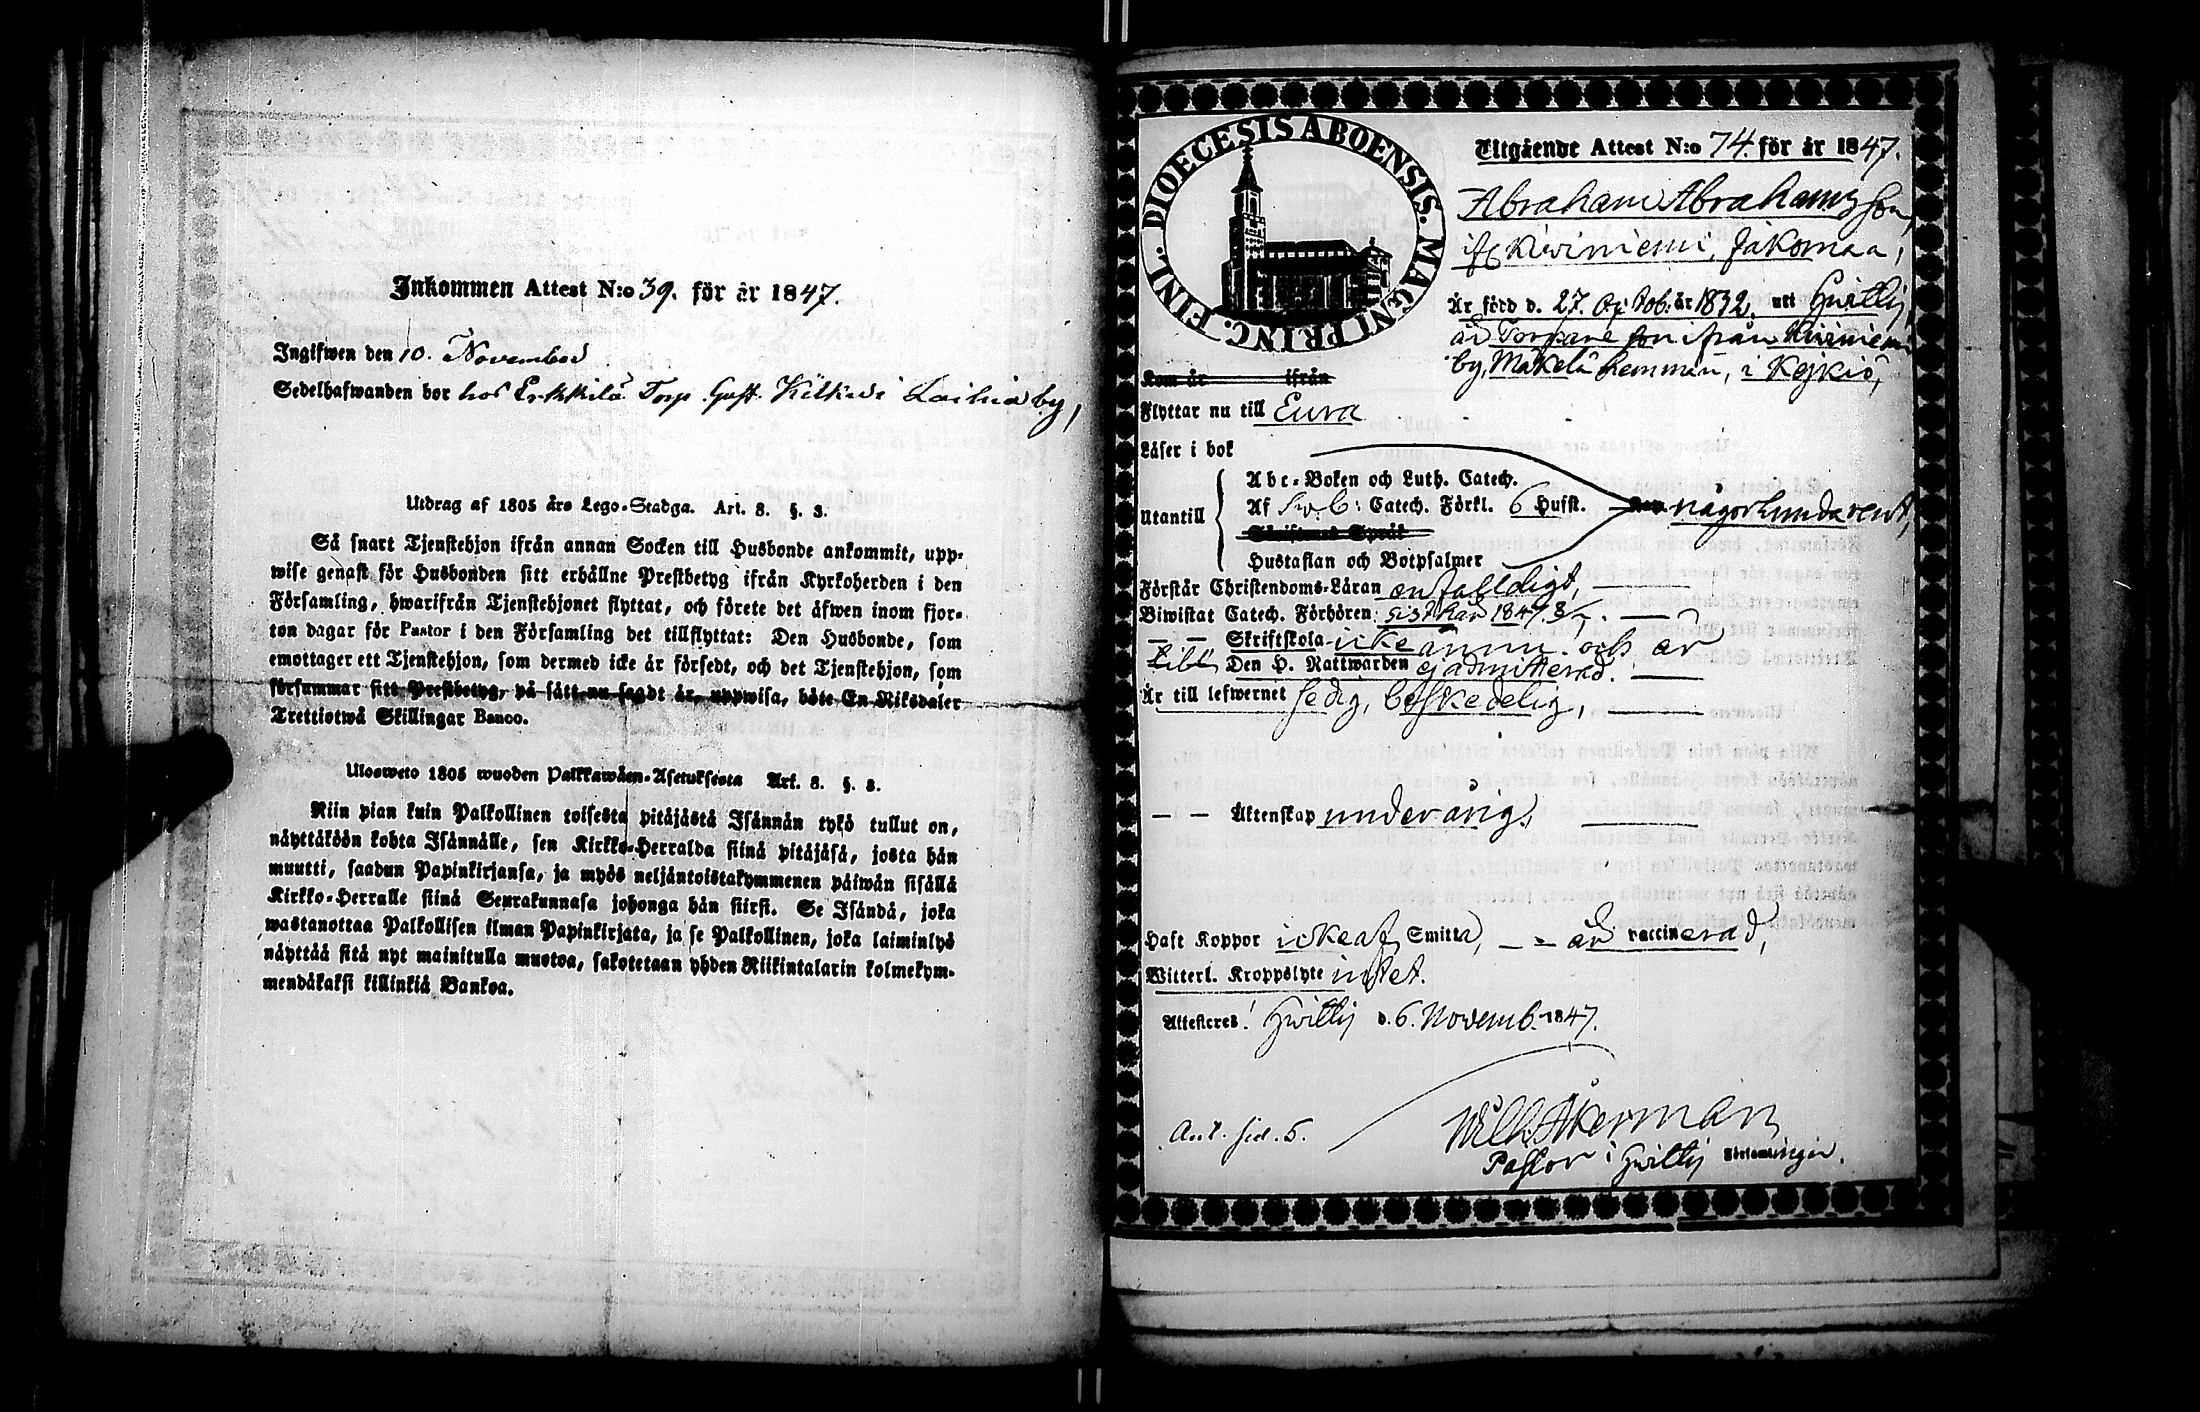 Inkommen Attest N:o 39. för år 1847.
Ingifwen den 10. November
Sedelhafwanden bor hos Erkkilä Torp. Gust. Kilkus Laihia by,
Utdrag af 1805 års Lego-Stadga. Art. 8. §. 3.
Så snart Tjenstehjon ifrån annan Socken till Husbonde ankommit, upp-
wise genast för Husbonden sitt erhållne Prestbetyg ifrån Kyrkoherden i den
Församling, hwarifrån Tjenstehjonet flyttat, och förete det äfwen inom fjor-
ton dagar för Pastor i den Församling det tillflyttat: Den Husbonde, som
emottager ett Tjenstehjon, som dermed icke är försedt, och det Tjenstehjon, som
försummar sitt Prestbetyg, på sätt nu sagdt är, uppwisa, böte En Riksdaler
Trettiotwå Skillingar Banco.
Ulosweto 1805 wuoden Palkkawäen-Asetuksesta Art. 8. §. 3.
Niin pian kuin Palkollinen toisesta pitäjästä Isännän tykö tullut on,
näyttäköön kohta Isännälle, sen Kirkko-Herralda siinä pitäjäsä, josta hän
muutti, saadun Papinkirjansa, ja myös neljäntoistakymmenen päiwän sisällä
Kirkko-Herralle siinä Seurakunnasa johonga hän siirsi. Se Isändä, joka
wastanottaa Palkollisen ilman Papinkirjata, ja se Palkollinen, joka laiminlyö
näyttää sitä nyt mainitulla muotoa, sakotetaan yhden Riikintalarin kolmekym-
mendäkaksi killinkiä Bankoa.
FINL. DIOECESIS ABOENSIS. MAGNI PRINC.
Utgående Attest N:o 74. för år 1847.
Abraham Abrahamsson,
ifr. Kiviniemi, Jakomaa,
Är född d. 27. Octob. år 1832. uti Hvittis,
är Torpare son ifrån Kiviniemi
by, Mäkelä hemman, i Kejkiö,
Kom år ifrån
Flyttar nu till Eura
Läser i bok
Abc-Boken och Luth. Catech.
Utantill Af Sveb: Catech. Förkl. 6 Hufst. någorlunda rent,
Skriftenes Språk
Hustaflan och Botpsalmer
Förstår Christendoms-Läran enfaldigt,
Biwistat Catech. Förhören: sist här 1847.
Skriftskola icke ännu. och är
Den H. Nattwarden ej admitterad.
Är till lefwernet sedig, beskedelig,
Äktenskap underårig.
Haft Koppor icke af Smitta, är vaccinerad,
Witterl. Kroppslyte intet.
Attesteres! Hvittis d. 6. Novemb. 1847.
Ant. sid. 5.
Wilh. Åkerman
Pastor i Hvittis Församlingar.